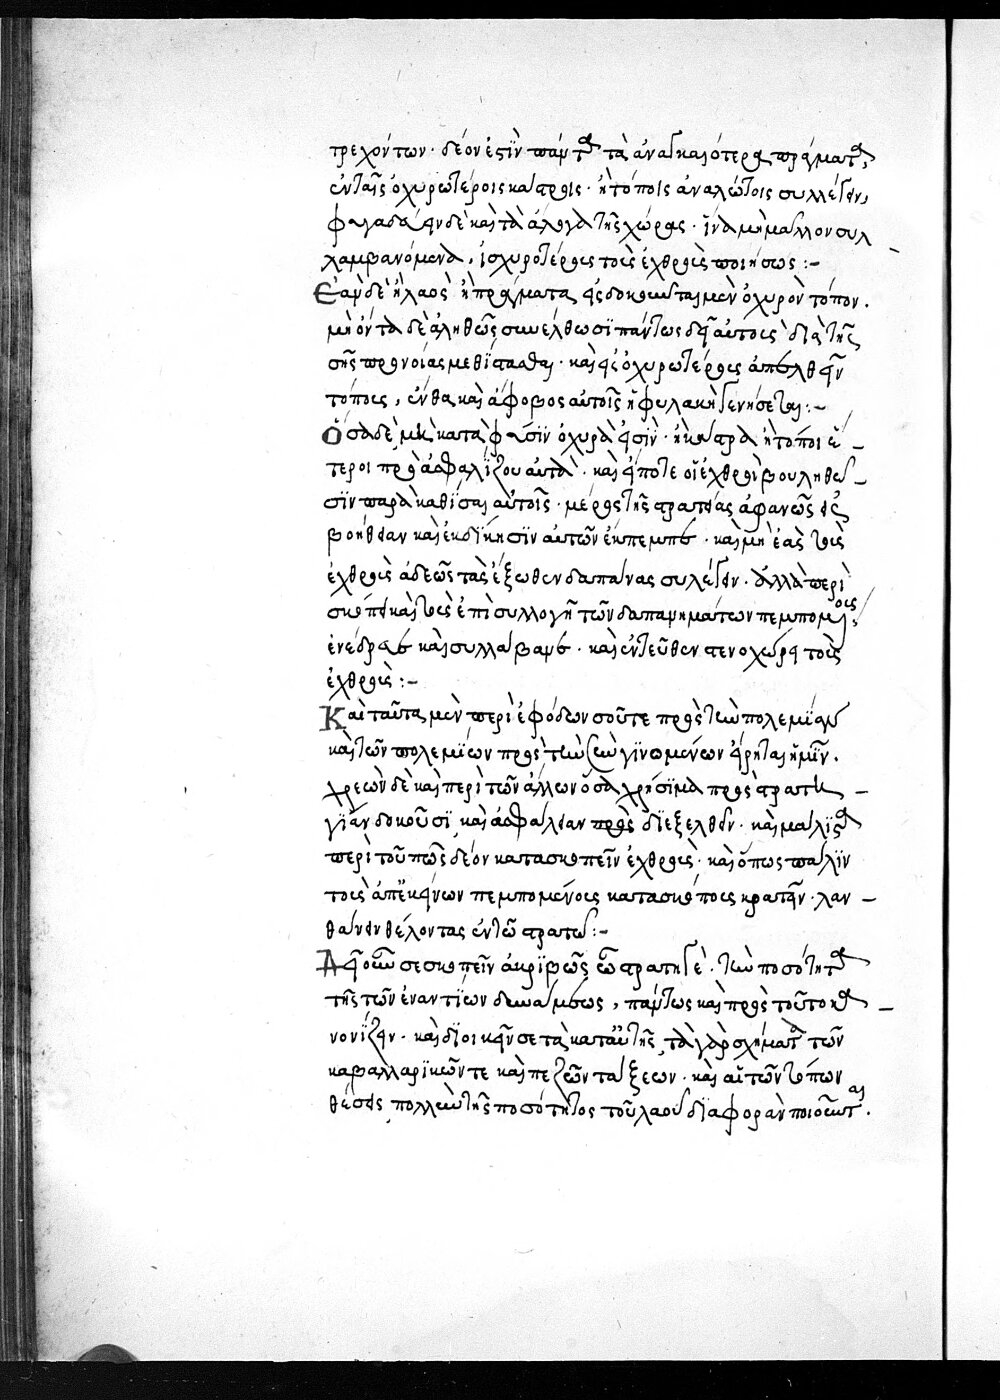 τρεχόντων· δέον ἐστὶν πάντα τὰ ἀναγκαιότερα πράγματα,
ἐν ταῖς ὀχυρωτέροις κάστροις· ἢ τόποις ἀναλώτοις συλλέγειν,
δὲ καὶ τὰ ἄλογα τῆς χώρας· ἵνα μὴ μᾶλλον συλ
λαμβανόμενα, ἰσχυροτέρους τοὺς ἐχθροὺς ποιήσωσι:-
Ἐὰν δὲ ἢ λαὸς ἢ πράγματα εἰς δοκοῦντα μὲν ὀχυρὸν τόπον·
μὴ ὄντα δὲ ἀληθῶς συνέλθωσι πάντως δεῖ αὐτοὺς διὰ τῆς
σῆς προνοίας μεθίστασθαι· καὶ εἰς ὀχυρωτέρους ἀπελθεῖν
τόπους, ἔνθα καὶ ἄφοβος αὐτοῖς ἡ φυλακὴ γενήσεται:-
Ὅσα δὲ μὴ κατὰ φύσιν ὀχυρά εἰσιν· ἢ κάστρα ἢ τόποι ἕ
τεροι προασφαλίζου αὐτά· καὶ εἴ ποτε οἱ ἐχθροὶ βουληθεῖ
σιν παρακαθίσαι αὐτοῖς· μέρος τῆς στρατιᾶς ἀφανῶς εἰς
βοήθειαν καὶ ἐκδίκησιν αὐτῶν ἔκπεμπε· καὶ μὴ ἐάσῃς τοὺς
ἐχθροὺς ἀδεῶς τὰς ἔξωθεν δαπάνας συλέγειν· ἀλλὰ περι
σκόπει καὶ τοὺς ἐπὶ συλλογῇ τῶν δαπανημάτων πεμπομένους
ἐνέδρευε καὶ συλλάμβανε· καὶ ἐντεῦθεν στενοχώρει τοὺς
ἐχθρούς:-
Καὶ ταῦτα μὲν περὶ ἐφόδων σοῦτε πρὸς τὴν πολεμίαν
καὶ τῶν πολεμίων πρὸς τὴν σὴν γινομένων εἴρηται ἡμῖν·
χρεὼν δὲ καὶ περὶ τῶν ἄλλων ὅσα χρήσιμα πρὸς στρατη
γίαν δοκοῦσι καὶ ἀσφάλειαν πρὸς διεξελθεῖν· καὶ μάλιστα
περὶ τοῦ πῶς δέον κατασκοπεῖν ἐχθρούς· καὶ ὅπως πάλιν
τοὺς ἀπ᾽ ἐκείνων πεμπομένους κατασκόπους κρατεῖν· λαν
θάνειν θέλοντας ἐν τῷ στρατῷ:-
Δεῖ οὖν σε σκοπεῖν ἀκριβῶς ὦ στρατηγέ· τὴν ποσότητα
τῆς τῶν ἐναντίων δυνάμεως, πάντως καὶ πρὸς τοῦτο κα
νονίζειν· καὶ διοικεῖν σε τὰ κατ᾽ αὐτῆς, τὰ γὰρ σχήματα τῶν
καβαλλαρικῶν τε καὶ πεζῶν τάξεων· καὶ αἱ τῶν τόπων
θέσεις πολλὴν τῆς ποσότητος τοῦ λαοῦ διαφορὰν ποιοῦνται·